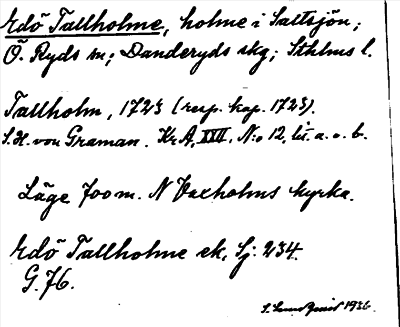 Edö Tallholme, holme i Saltsjön;
Ö. Ryds sn; Danderyds skg; Sthlms l.
Tallholm, 1723 (resp. kop. 1723).
S.H. von Graman. Kr A, XXII, No 12, lit. a. o. b.
Läge 700 m. N Vaxholms kyrka.
Edö Tallholme ek, Sj: 234.
G. 76.
S. Sundqvist 1936.